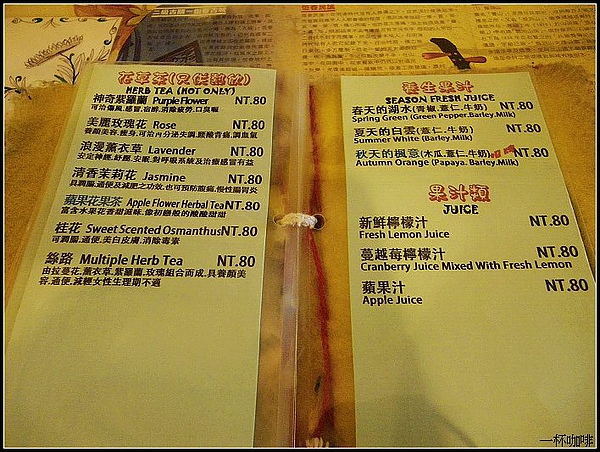 花草茶(只供熱飲)
HERB TEA (HOT ONLY)
神奇紫羅蘭 Purple Flower NT.80
可治傷風,感冒,宿醉,消除疲勞,口臭喔
美麗玫瑰花 Rose NT.80
養顏美容,瘦身,可治內分泌失調,腰酸背痛,調血氣
浪漫薰衣草 Lavender NT.80
安定神經,舒壓,安眠,對呼吸系統及治療感冒有益
清香茉莉花 Jasmine NT.80
具潤腸,通便及減肥之功效,也可預防腹痛,慢性腸胃炎
蘋果花果茶 Apple Flower Herbal Tea NT.80
富含水果花香甜滋味,像初戀般的酸酸甜甜
桂花 Sweet Scented Osmanthus NT.80
可潤腸,通便,美白皮膚,消除毒素
絲路 Multiple Herb Tea NT.80
由拉曼花,薰衣草,紫羅蘭,玫瑰組合而成,具養顏美
容,通便,減輕女性生理期不適
養生果汁
SEASON FRESH JUICE
春天的湖水(青椒.薏仁.牛奶) NT.80
Spring Green (Green Pepper.Barley.Milk)
夏天的白雲(薏仁.牛奶) NT.80
Summer White (Barley.Milk)
秋天的楓意(木瓜.薏仁.牛奶) NT.80
Autumn Orange (Papaya. Barley.Milk)
果汁類
JUICE
新鮮檸檬汁 NT.80
Fresh Lemon Juice
蔓越莓檸檬汁 NT.80
Cranberry Juice Mixed With Fresh Lemon
蘋果汁 NT.80
Apple Juice
一杯咖啡